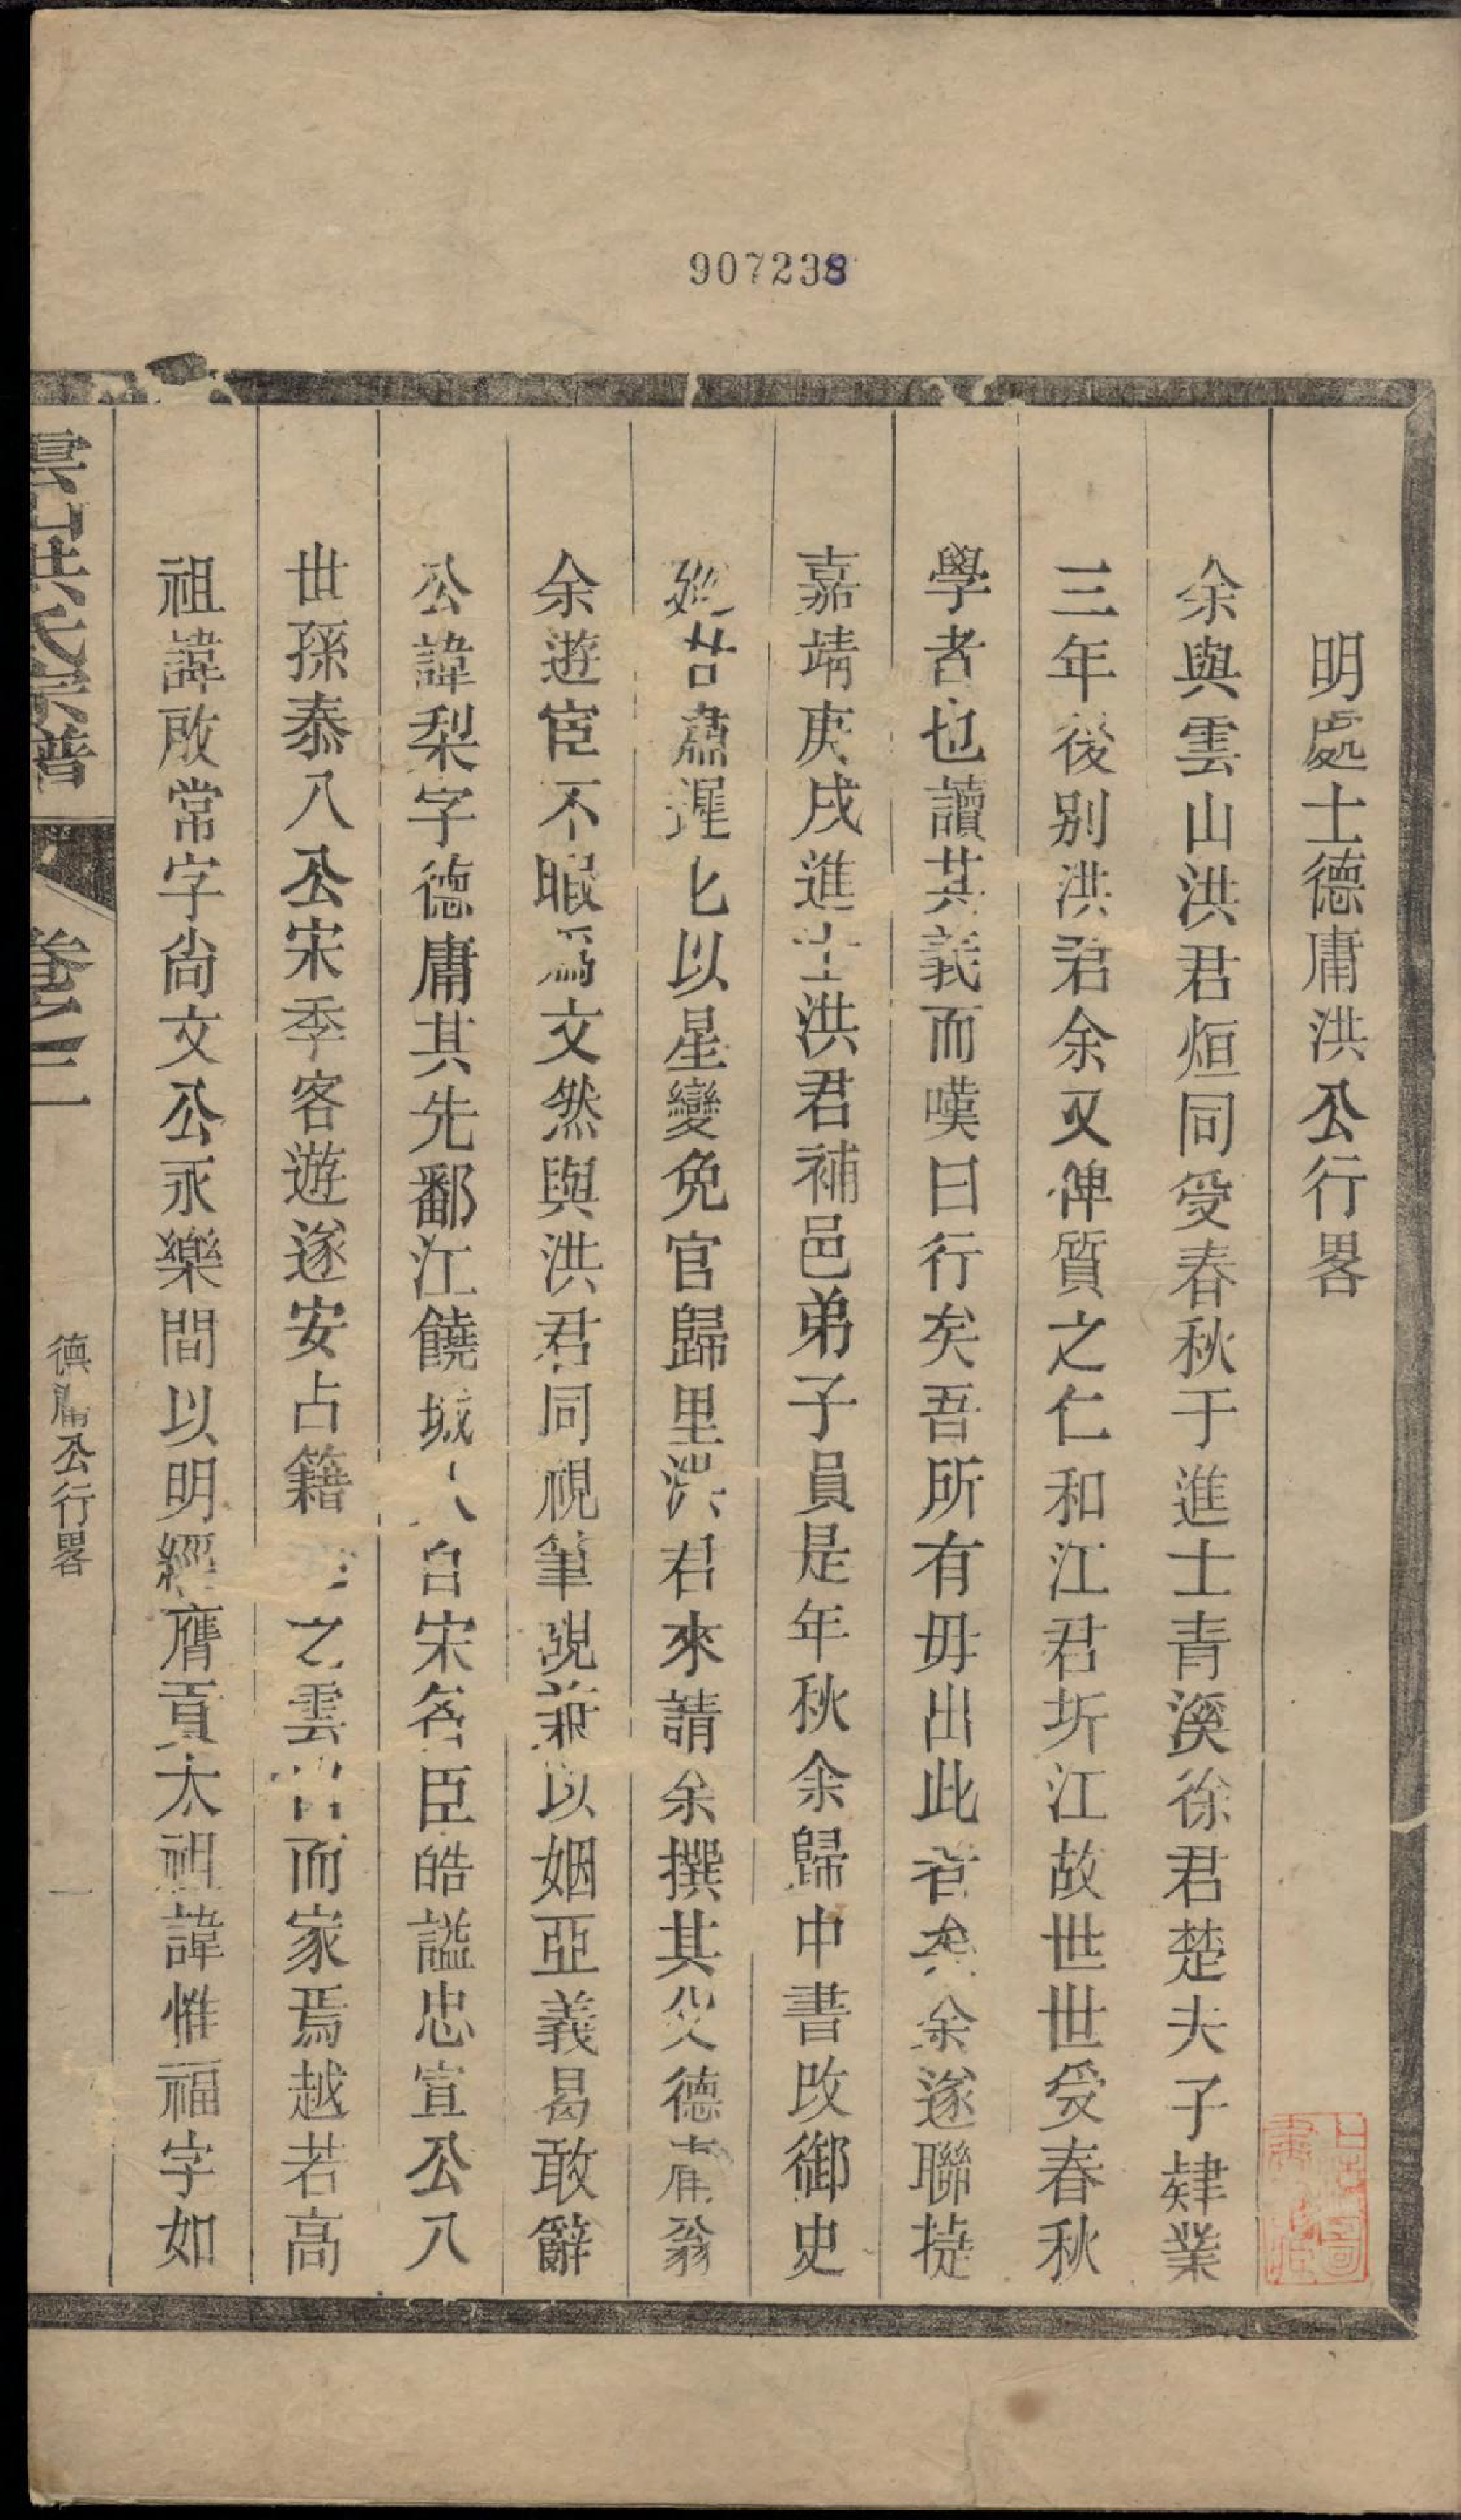 907238
明處士德庸洪公行畧
余與雲山洪君烜同受春秋于進士青溪徐君楚夫子肄業
三年後别洪君余又俾質之仁和江君圻江故世世受春秋
學者也讀其義而嘆曰行矣吾所有毋出此者矣余遂聯㨗
嘉靖庚戌進士洪君補邑弟子員是年秋余歸中書改御史
以星變免官歸里洪君來請余撰其父德庸翁
余遊宦不暇爲文然與洪君同視筆硯兼以姻亞義曷敢辭
公諱梨字德庸其先鄱江饒城人自宋名臣皓謚忠宣公八
世孫泰八公宋季客遊遂安占籍之雲山而家焉越若高
祖諱啟常字尙文公永樂間以明經膺貢太祖諱惟福字如
雲山洪氏宗譜
卷之二
德庸公行畧
一